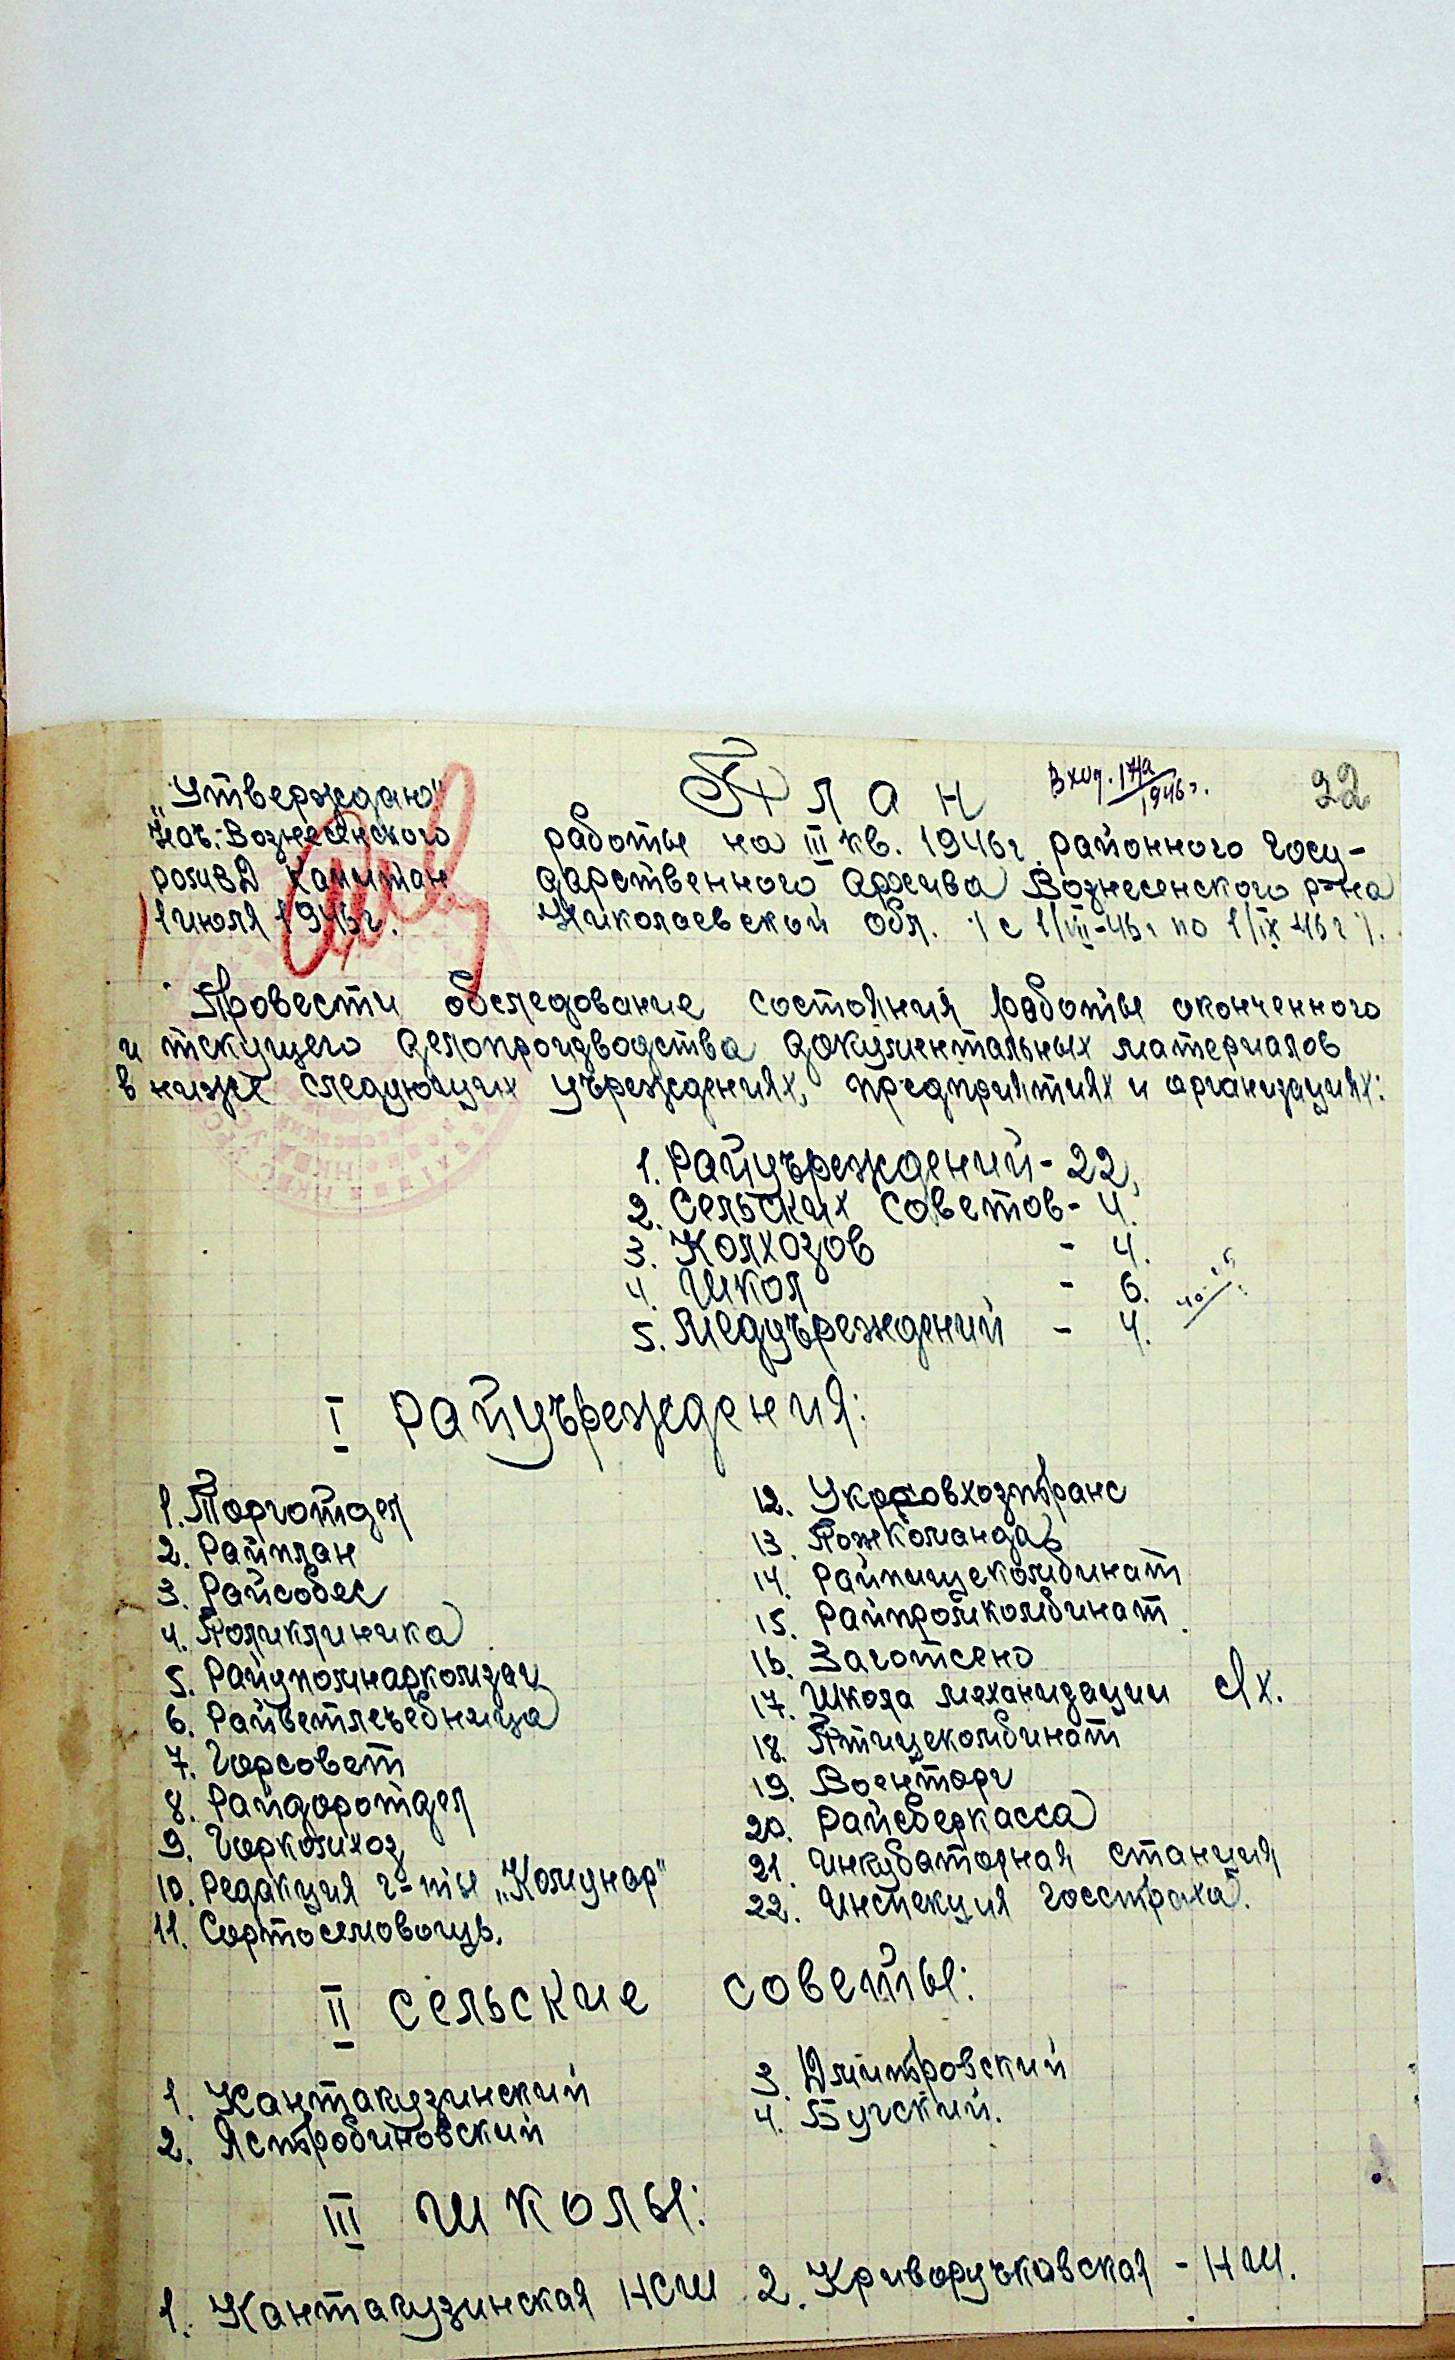 План
Вход. 17а/1946г.
22
„Утверждаю"
Нач. Вознесенского
РОМВД Капитан
1 июля 1946г.
работы на III кв. 1946г. районного Госу-
дарственного Архива Вознесенского р-на
Николаевской обл. /с 1/VII-46г по 1/IX-46г/.
Провести обследование состояния работы оконченного
и текущего делопроизводства документальных материалов
в ниже следующих учреждениях, предприятиях и организациях:
1. Райучреждений - 22,
2. Сельских советов - 4.
3. Колхозов - 4.
4. Школ - 6.
5. Медучреждений - 4.
I Райучреждения:
1. Торготдел
2. Райплан
3. Райсобес
4. Поликлиника
5. Райуполнаркомзаг
6. Райветлечебница
7. Горсовет
8. Райдоротдел
9. Горкомхоз
10. Редакция г-ты „Комунар"
11. Сортосемовощь.
12. Укрсовхозтранс
13. Пожкоманда
14. Райпищекомбинат
15. Райпромкомбинат.
16. Заготсено
17. Школа механизации с/х.
18. Птицекомбинат
19. Военторг
20. Райсберкасса
21. Инкубаторная станция
22. Инспекция Госстраха.
II Сельские советы:
1. Кантакузинский
2. Ястребиновский
3. Дмитровский
4. Бугский.
III Школы:
1. Кантакузинская НСШ 2. Криворучковская - НШ.